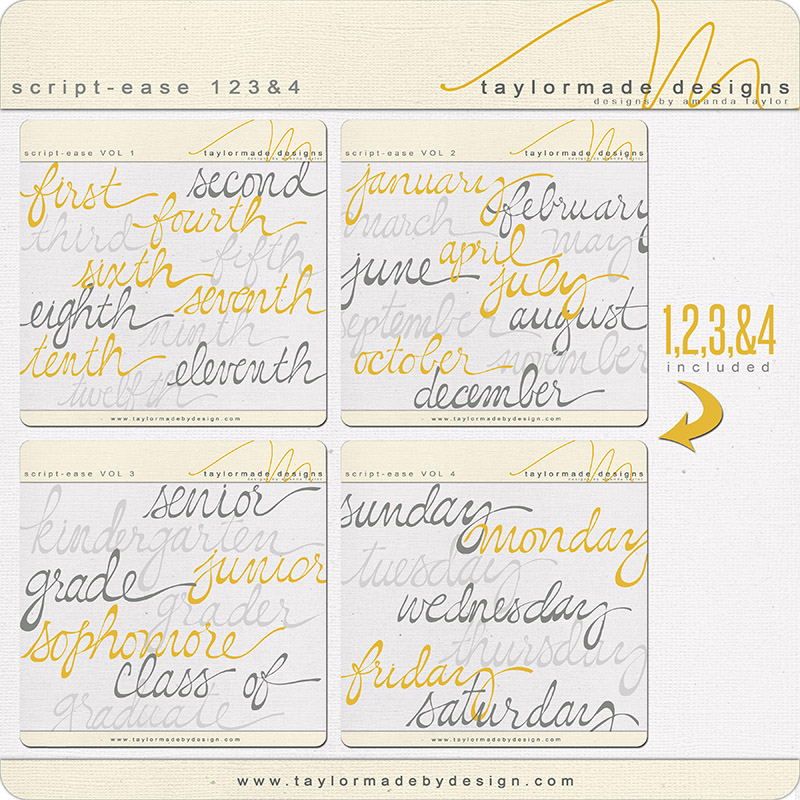 script-ease 123&4
taylormade designs
designs by amanda taylor
script-ease VOL 1
taylormade designs
designs by amanda taylor
first
second
third
fourth
fifth
sixth
seventh
eighth
ninth
tenth
eleventh
twelfth
www.taylormadebydesign.com
script-ease VOL 2
taylormade designs
designs by amanda taylor
january
february
march
april
may
june
july
august
september
october
november
december
www.taylormadebydesign.com
1,2,3,&4
included
script-ease VOL 3
taylormade designs
designs by amanda taylor
senior
kindergarten
grade
junior
grader
sophomore
class of
graduate
www.taylormadebydesign.com
script-ease VOL 4
taylormade designs
designs by amanda taylor
sunday
monday
tuesday
wednesday
thursday
friday
saturday
www.taylormadebydesign.com
www.taylormadebydesign.com